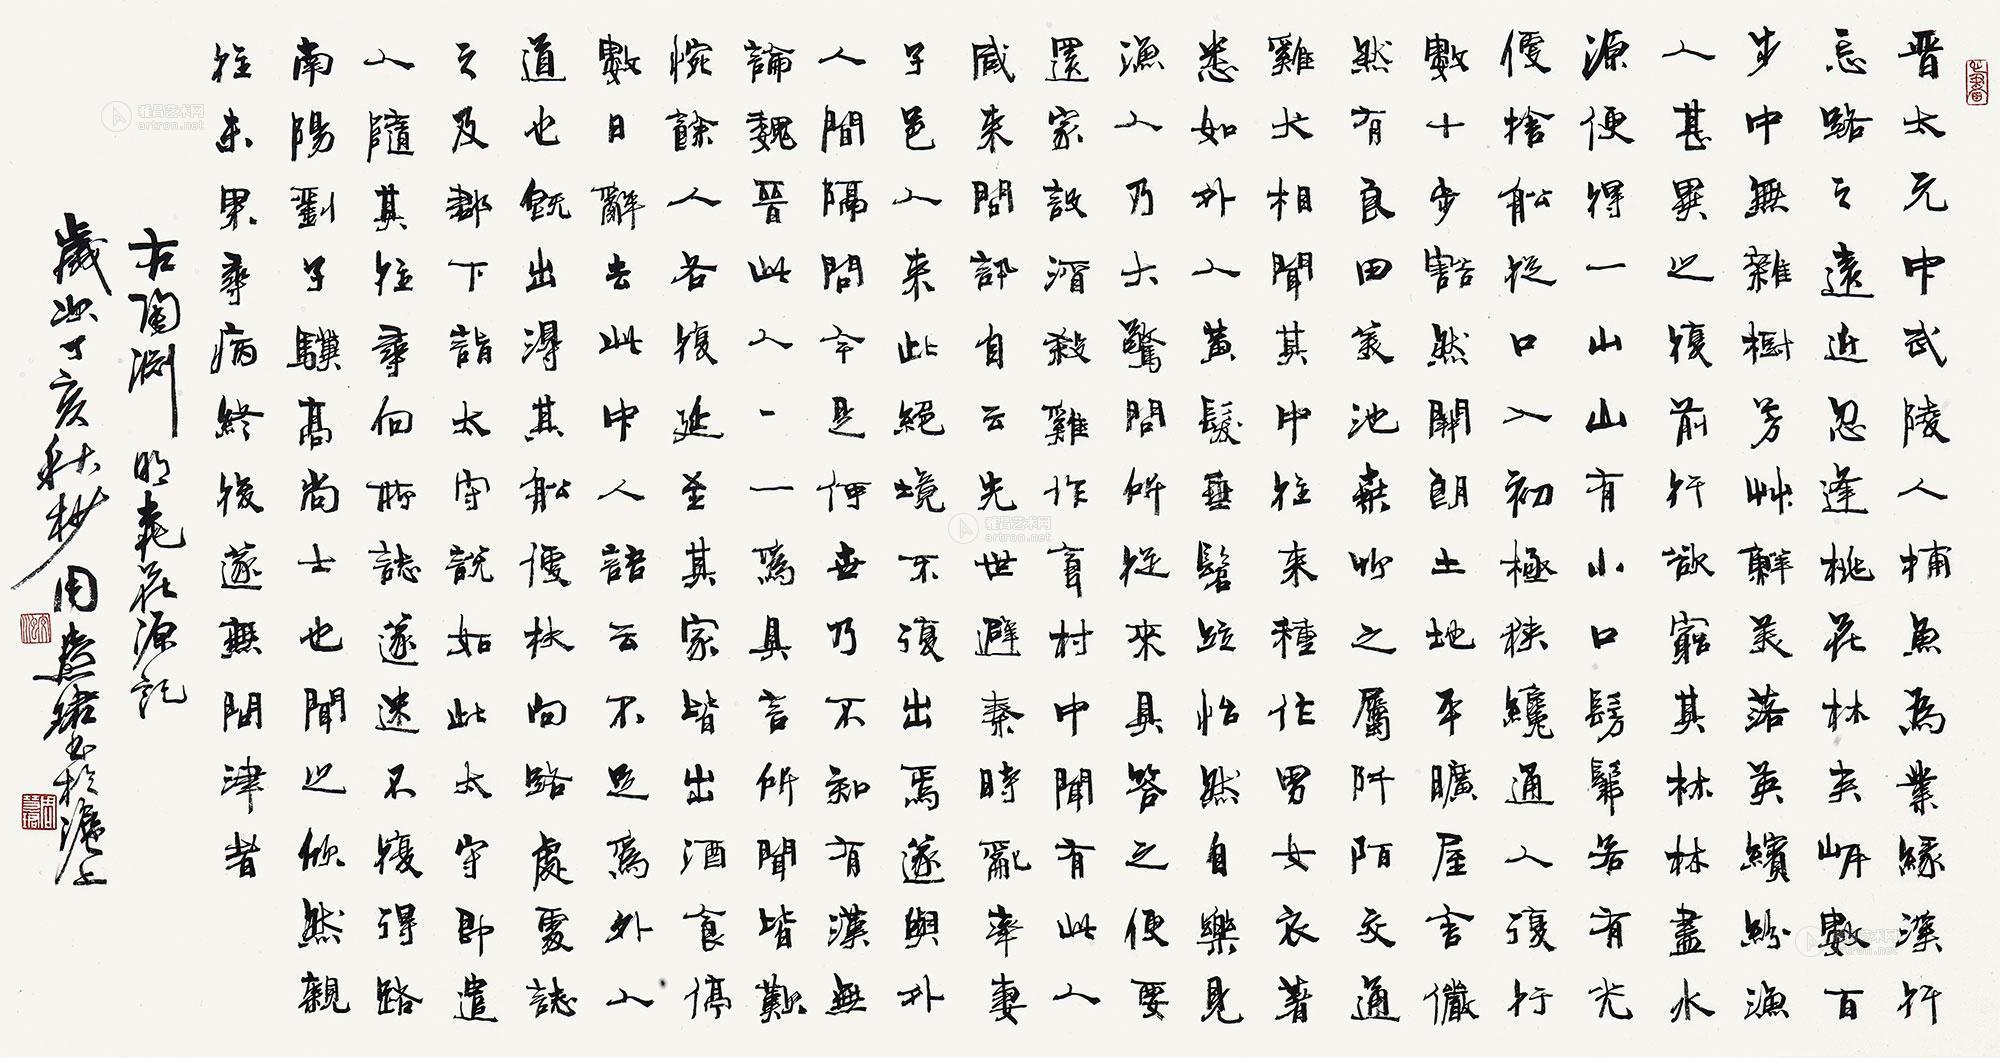 晋太元中武陵人捕魚為業緣溪行
忘路之遠近忽逢桃花林夾岸數百
步中無雜樹芳艸鮮美落英繽紛漁
人甚異之復前行欲窮其林林盡水
源便得一山山有小口髣髴若有光
便捨船從口入初極狹纔通人復行
數十步豁然開朗土地平曠屋舍儼
然有良田美池桑竹之屬阡陌交通
雞犬相聞其中往来種作男女衣著
悉如外人黃髮垂髫並怡然自樂見
漁人乃大驚問所從來具答之便要
還家設酒殺雞作食村中聞有此人
咸来問訊自云先世避秦時亂率妻
子邑人来此絕境不復出焉遂與外
人間隔問今是何世乃不知有漢無
論魏晉此人一一為具言所聞皆歎
惋餘人各復延至其家皆出酒食停
數日辭去此中人語云不足為外人
道也既出得其船便扶向路處處誌
之及郡下詣太守説如此太守即遣
人隨其往尋向所誌遂迷不復得路
南陽劉子驥高尚士也聞之欣然親
往未果尋病終後遂無問津者
右陶淵明桃花源記
歲次丁亥秋杪周慧珺書於滬上
雅昌艺术网
artron.net
雅昌艺术网
artron.net
雅昌艺术网
artron.net